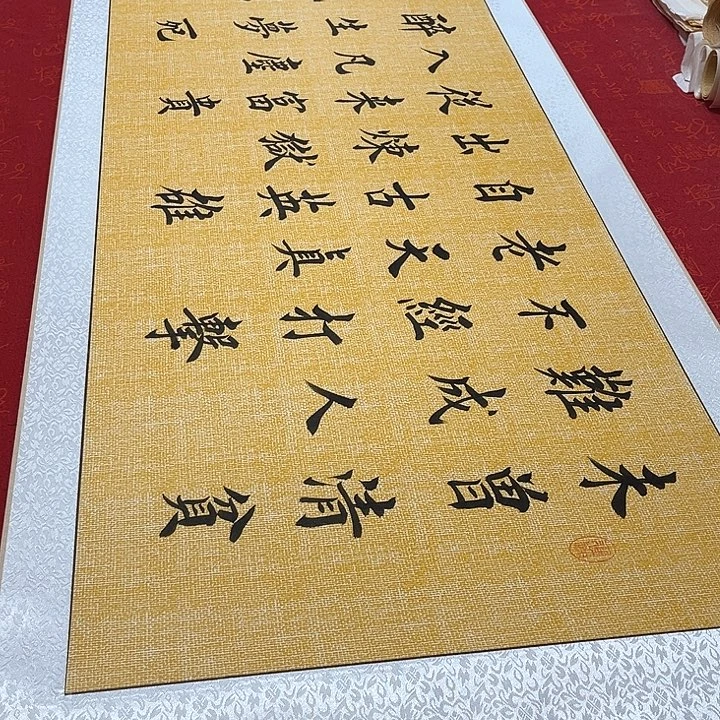 未曾清貧
難成人
不經打擊
老天真
自古英雄
出煉獄
從來富貴
入凡塵
醉生夢死